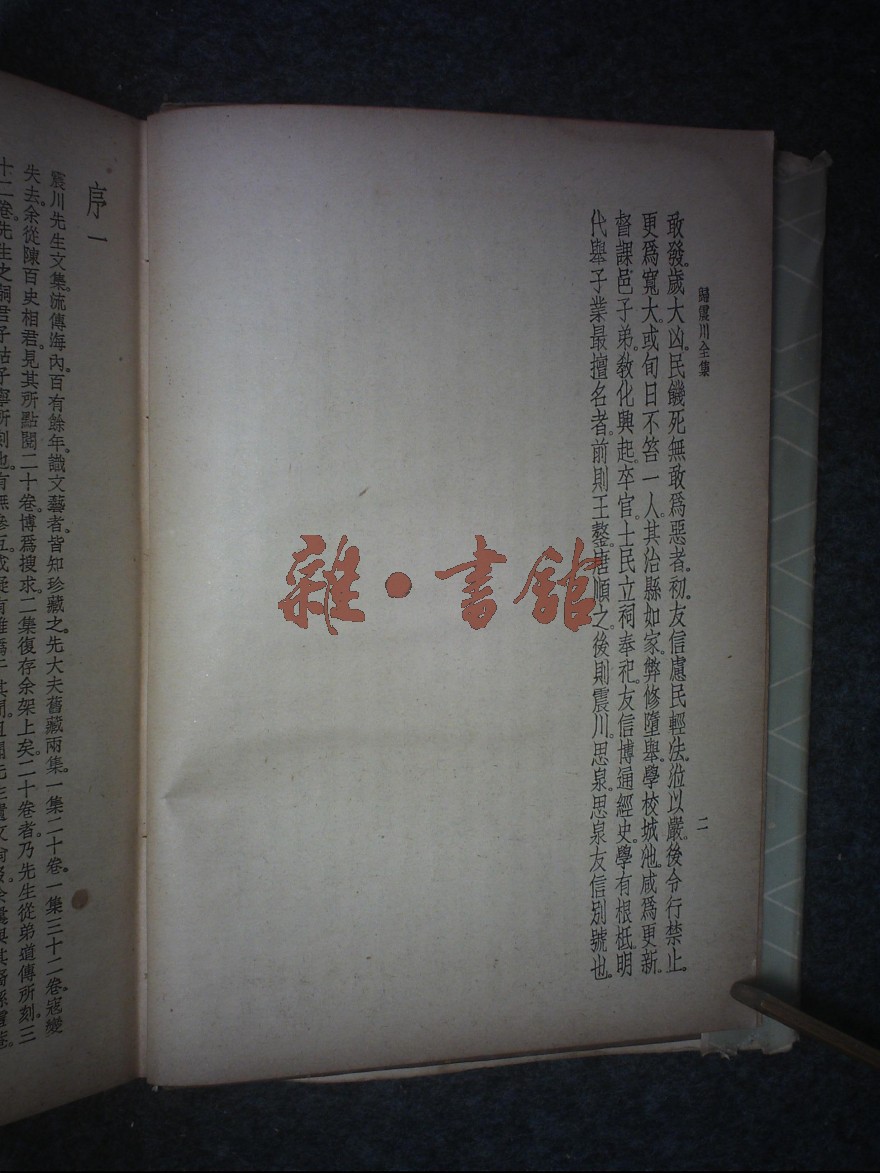 歸震川全集
二
敢發。歲大凶。民饑死無敢爲惡者。初。友信慮民輕法。涖以嚴。後令行禁止。
更爲寬大。或旬日不笞一人。其治縣如家。弊修墮舉。學校城池。咸爲更新。
督課邑子弟。敎化興起。卒官。士民立祠奉祀。友信博通經史。學有根柢。明
代舉子業最擅名者。前則王鏊。唐順之。後則震川。思泉。思泉友信別號也。
雜·書館
序一
震川先生文集。流傳海內。百有餘年。識文藝者。皆知珍藏之。先大夫舊藏兩集。一集二十卷。一集三十二卷。寇變
失去。余從陳百史相君。見其所點閱二十卷。博爲搜求。二集復存余架上矣。二十卷者。乃先生從弟道傳所刻。三
十二卷。先生之嗣君子祜子寧所刻也。有無參互。